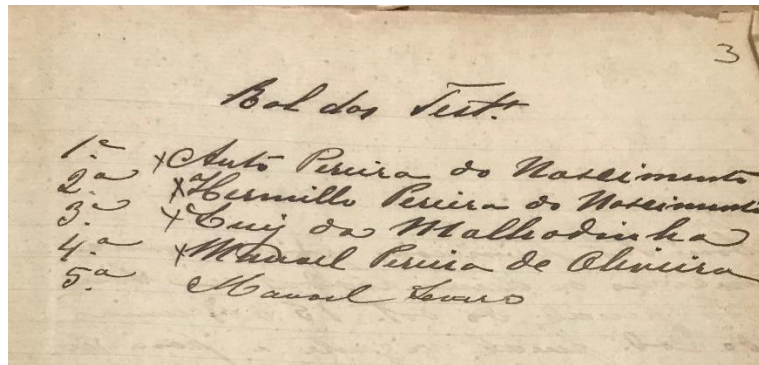 3
Rol das Test.as
1.a × Antº Pereira do Nascimento
2.a × Hermillo Pereira do Nascimento
3.a × Luiz da Malhadinha
4.a × Manoel Pereira de Oliveira
5.a Manoel Severo